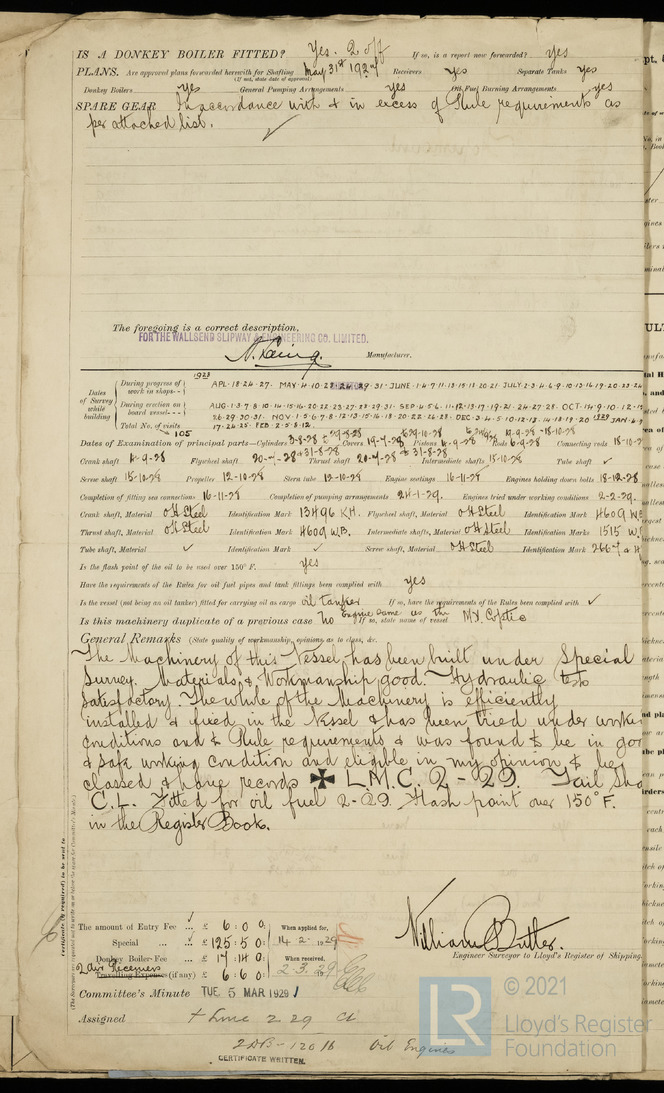 IS A DONKEY BOILER FITTED? Yes. 2 off If so, is a report now forwarded? yes
PLANS. Are approved plans forwarded herewith for Shafting May 31st 1927 Receivers Yes Separate Tanks Yes
(If not, state date of approval)
Donkey Boilers yes General Pumping Arrangements yes Oil Fuel Burning Arrangements yes
SPARE GEAR In accordance with & in excess of Rule requirements as
per attached list.
The foregoing is a correct description,
FOR THE WALLSEND SLIPWAY & ENGINEERING CO. LIMITED.
Manufacturer.
1928
Dates of Survey while building
During progress of work in shops-- APL. 18. 24. 27. MAY. 4. 10. 31. JUNE. 1. 4. 7. 11. 13. 15. 11. 20. 21. JULY. 2. 3. 4. 6. 9. 10. 13. 16. 19. 20. 23. 24
During erection on board vessel--- AUG. 1. 3. 7. 8. 10. 14. 15. 16. 20. 22. 23. 27. 28. 29. 31. SEP. 4. 5. 6. 11. 12. 13. 17. 19. 21. 24. 27. 28. OCT.
26. 29. 30. 31. NOV. 1. 5. 6. 7. 8. 12. 13. 15. 16. 18. 20. 22. 26. 28. DEC. 3. 4. 5. 10. 12. 13. 14. 18. 19. 20 1929 JAN.
Total No. of visits 105 17. 24. 25. FEB. 2. 5. 8. 12.
Dates of Examination of principal parts—Cylinders 3-8-28 Covers 19-7-28 Pistons 4-9-28 Rods 6-9-28 Connecting rods 18-10-2
Crank shaft 4-9-28 Flywheel shaft 20-7-28 + 31-8-28 Thrust shaft 20-7-28 + 31-8-28 Intermediate shafts 15-10-28 Tube shaft ✓
Screw shaft 15-12-28 Propeller 12-10-28 Stern tube 12-10-28 Engine seatings 16-11-28 Engines holding down bolts 18-12-28
Completion of fitting sea connections 16-11-28 Completion of pumping arrangements 24-1-29. Engines tried under working conditions 2-2-29.
Crank shaft, Material OH Steel Identification Mark 13496 KH. Flywheel shaft, Material OH Steel Identification Mark 4609 WB
Thrust shaft, Material OH Steel Identification Mark 4609 WB. Intermediate shafts, Material OH Steel Identification Marks 1515 W
Tube shaft, Material ✓ Identification Mark ✓ Screw shaft, Material OH Steel Identification Mark
Is the flash point of the oil to be used over 150° F. yes
Have the requirements of the Rules for oil fuel pipes and tank fittings been complied with yes
Is the vessel (not being an oil tanker) fitted for carrying oil as cargo oil tanker If so, have the requirements of the Rules been complied with ✓
Is this machinery duplicate of a previous case No Engine same as the If so, state name of vessel MV. Coptic
General Remarks (State quality of workmanship, opinions as to class, &c.
The Machinery of this Vessel has been built under Special
Survey. Materials & Workmanship good. Hydraulic tests
satisfactory. The whole of the Machinery is efficiently
installed & fixed in the Vessel & has been tried under workin
conditions and to Rule requirements & was found to be in goo
& safe working condition and eligible in my opinion to be
classed & have records ✠ L.M.C. 2-29. Tail Sha
C.L. Fitted for oil fuel 2-29. Flash point over 150°F.
in the Register Book.
Certificate (if required) to be sent to
The amount of Entry Fee ... £ 6 : 0 : 0 When applied for,
Special ... £ 125 : 5 : 0 14. 2. 1929
Donkey Boiler Fee £ 17 : 14 : 0 When received,
2 Air Receivers Travelling Expenses (if any) £ 6 : 6 : 0 2. 3. 29
William Butler.
Engineer Surveyor to Lloyd's Register of Shipping.
Committee's Minute TUE 5 MAR 1929
Assigned + Lmc 2 29 Cl
2 DB - 120 lb Oil Engines
CERTIFICATE WRITTEN.
LR
© 2021
Lloyd's Register
Foundation